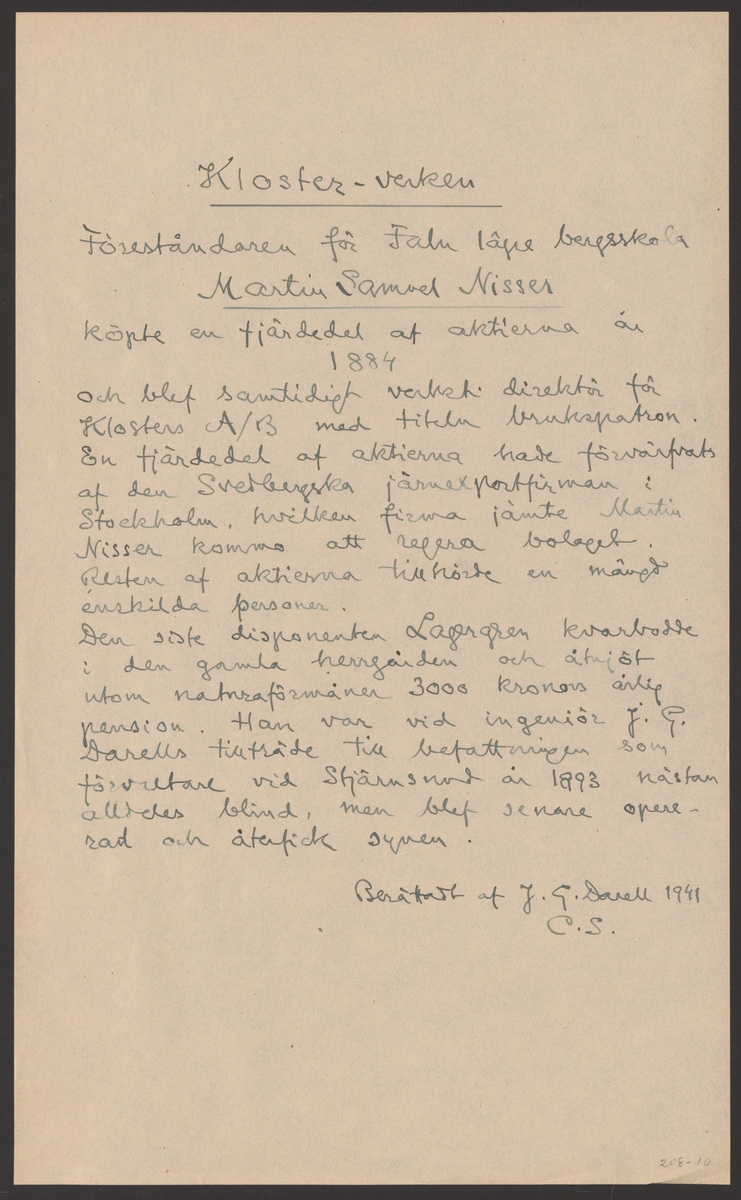 Kloster-verken
Föreståndaren för Falu lägre bergsskola
Martin Samuel Nisser
köpte en fjärdedel af aktierna år
1884
och blef samtidigt verkst. direktör för
Klosters A/B med titeln brukspatron.
En fjärdedel af aktierna hade förvärfvats
af den Svedbergska järnexportfirman i
Stockholm, hvilken firma jämte Martin
Nisser kommo att regera bolaget.
Resten af aktierna tillhörde en mängd
enskilda personer.
Den siste disponenten Lagergren kvarbodde
i den gamla herrgården och åtnjöt
utom naturaförmåner 3000 kronors årlig
pension. Han var vid ingeniör J. G.
Darells tillträde till befattningen som
förvaltare vid Stjärnsund år 1893 nästan
alldeles blind, men blef senare opere-
rad och återfick synen.
Berättadt af J. G. Darell 1941
C.S.
208-10